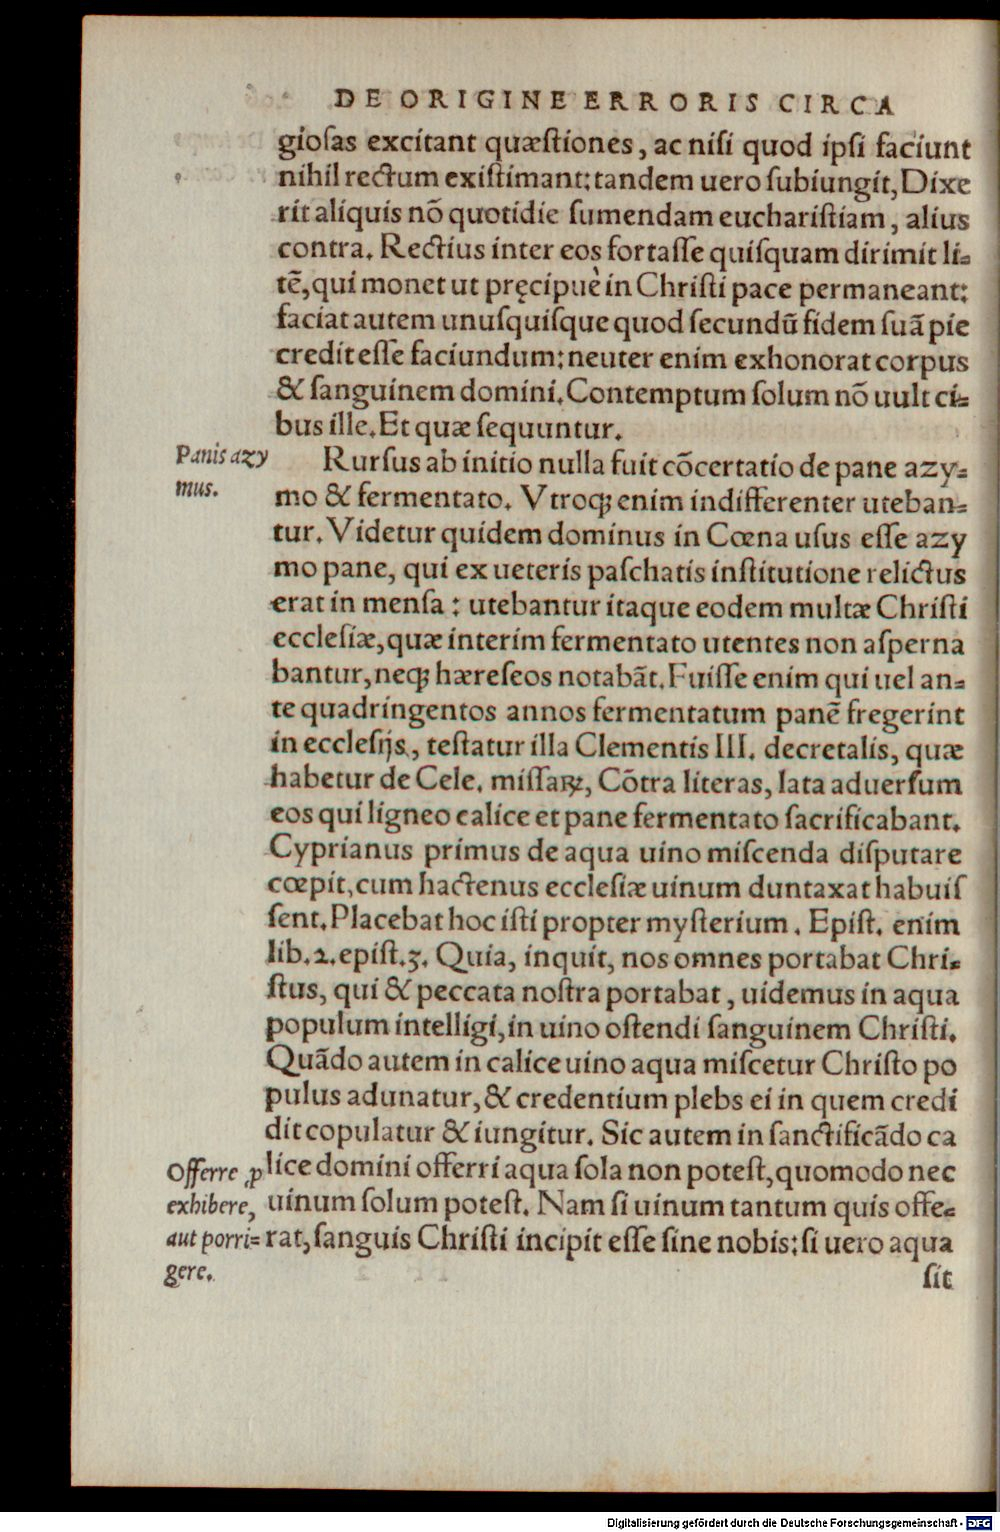 DE ORIGINE ERRORIS CIRCA
gioſas excitant quæſtiones, ac niſi quod ipſi faciunt
nihil rectum exiſtimant: tandem uero ſubiungit, Dixe
rit aliquis nõ quotidie ſumendam euchariſtiam, alius
contra. Rectius inter eos fortaſſe quiſquam dirimit li-
tẽ, qui monet ut pręcipuè in Chriſti pace permaneant:
faciat autem unuſquiſque quod ſecundũ fidem ſuã pie
credit eſſe faciundum: neuter enim exhonorat corpus
& ſanguinem domini. Contemptum ſolum nõ uult ci-
bus ille. Et quæ ſequuntur.
Panis azy
mus.
Rurſus ab initio nulla fuit cõcertatio de pane azy-
mo & fermentato. Vtroqꝫ enim indifferenter uteban-
tur. Videtur quidem dominus in Cœna uſus eſſe azy
mo pane, qui ex ueteris paſchatis inſtitutione relictus
erat in menſa: utebantur itaque eodem multæ Chriſti
eccleſiæ, quæ interim fermentato utentes non aſperna
bantur, neqꝫ hæreſeos notabãt. Fuiſſe enim qui uel an-
te quadringentos annos fermentatum panẽ fregerint
in eccleſijs, teſtatur illa Clementis III. decretalis, quæ
habetur de Cele. miſſaꝝ, Cõtra literas, lata aduerſum
eos qui ligneo calice et pane fermentato ſacrificabant.
Cyprianus primus de aqua uino miſcenda diſputare
cœpit, cum hactenus eccleſiæ uinum duntaxat habuiſ
ſent. Placebat hoc iſti propter myſterium. Epiſt. enim
lib. 2. epiſt. 3. Quia, inquit, nos omnes portabat Chri-
ſtus, qui & peccata noſtra portabat, uidemus in aqua
populum intelligi, in uino oſtendi ſanguinem Chriſti.
Quãdo autem in calice uino aqua miſcetur Chriſto po
pulus adunatur, & credentium plebs ei in quem credi
dit copulatur & iungitur. Sic autem in ſanctificãdo ca
lice domini offerri aqua ſola non poteſt, quomodo nec
uinum ſolum poteſt. Nam ſi uinum tantum quis offe-
rat, ſanguis Chriſti incipit eſſe ſine nobis: ſi uero aqua
Offerre ꝓ
exhibere,
aut porri-
gere.
ſit
Digitalisierung gefördert durch die Deutsche Forschungsgemeinschaft - DFG